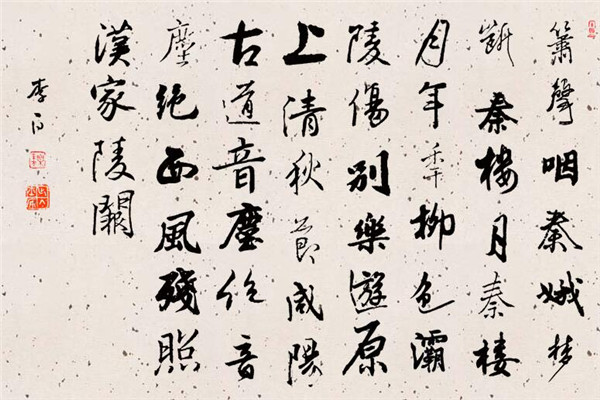 簫聲咽秦娥夢
斷秦樓月秦樓
月年秊柳色灞
陵傷別樂遊原
上清秋節咸陽
古道音塵絕音
塵絕西風殘照
漢家陵闕
李白